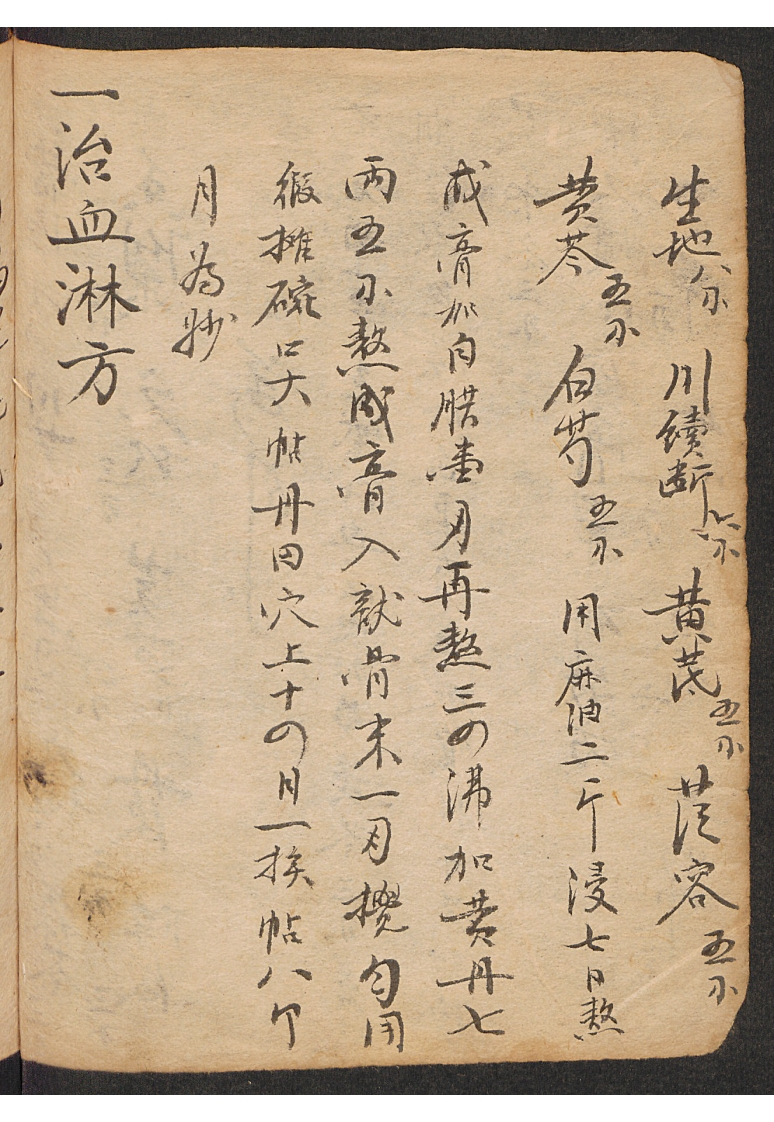 生地分 川續断分 黄茋五分 苁容五分
黄芩五分 白芍五分 用麻油二斤浸七日熬
成膏加白腊壹月再熬三四沸加黄丹七
兩五分熬成膏入龍骨末一刃攪匀用
椴攤碗口大帖丹田穴上十四日一换帖八个
月為妙
一治血淋方